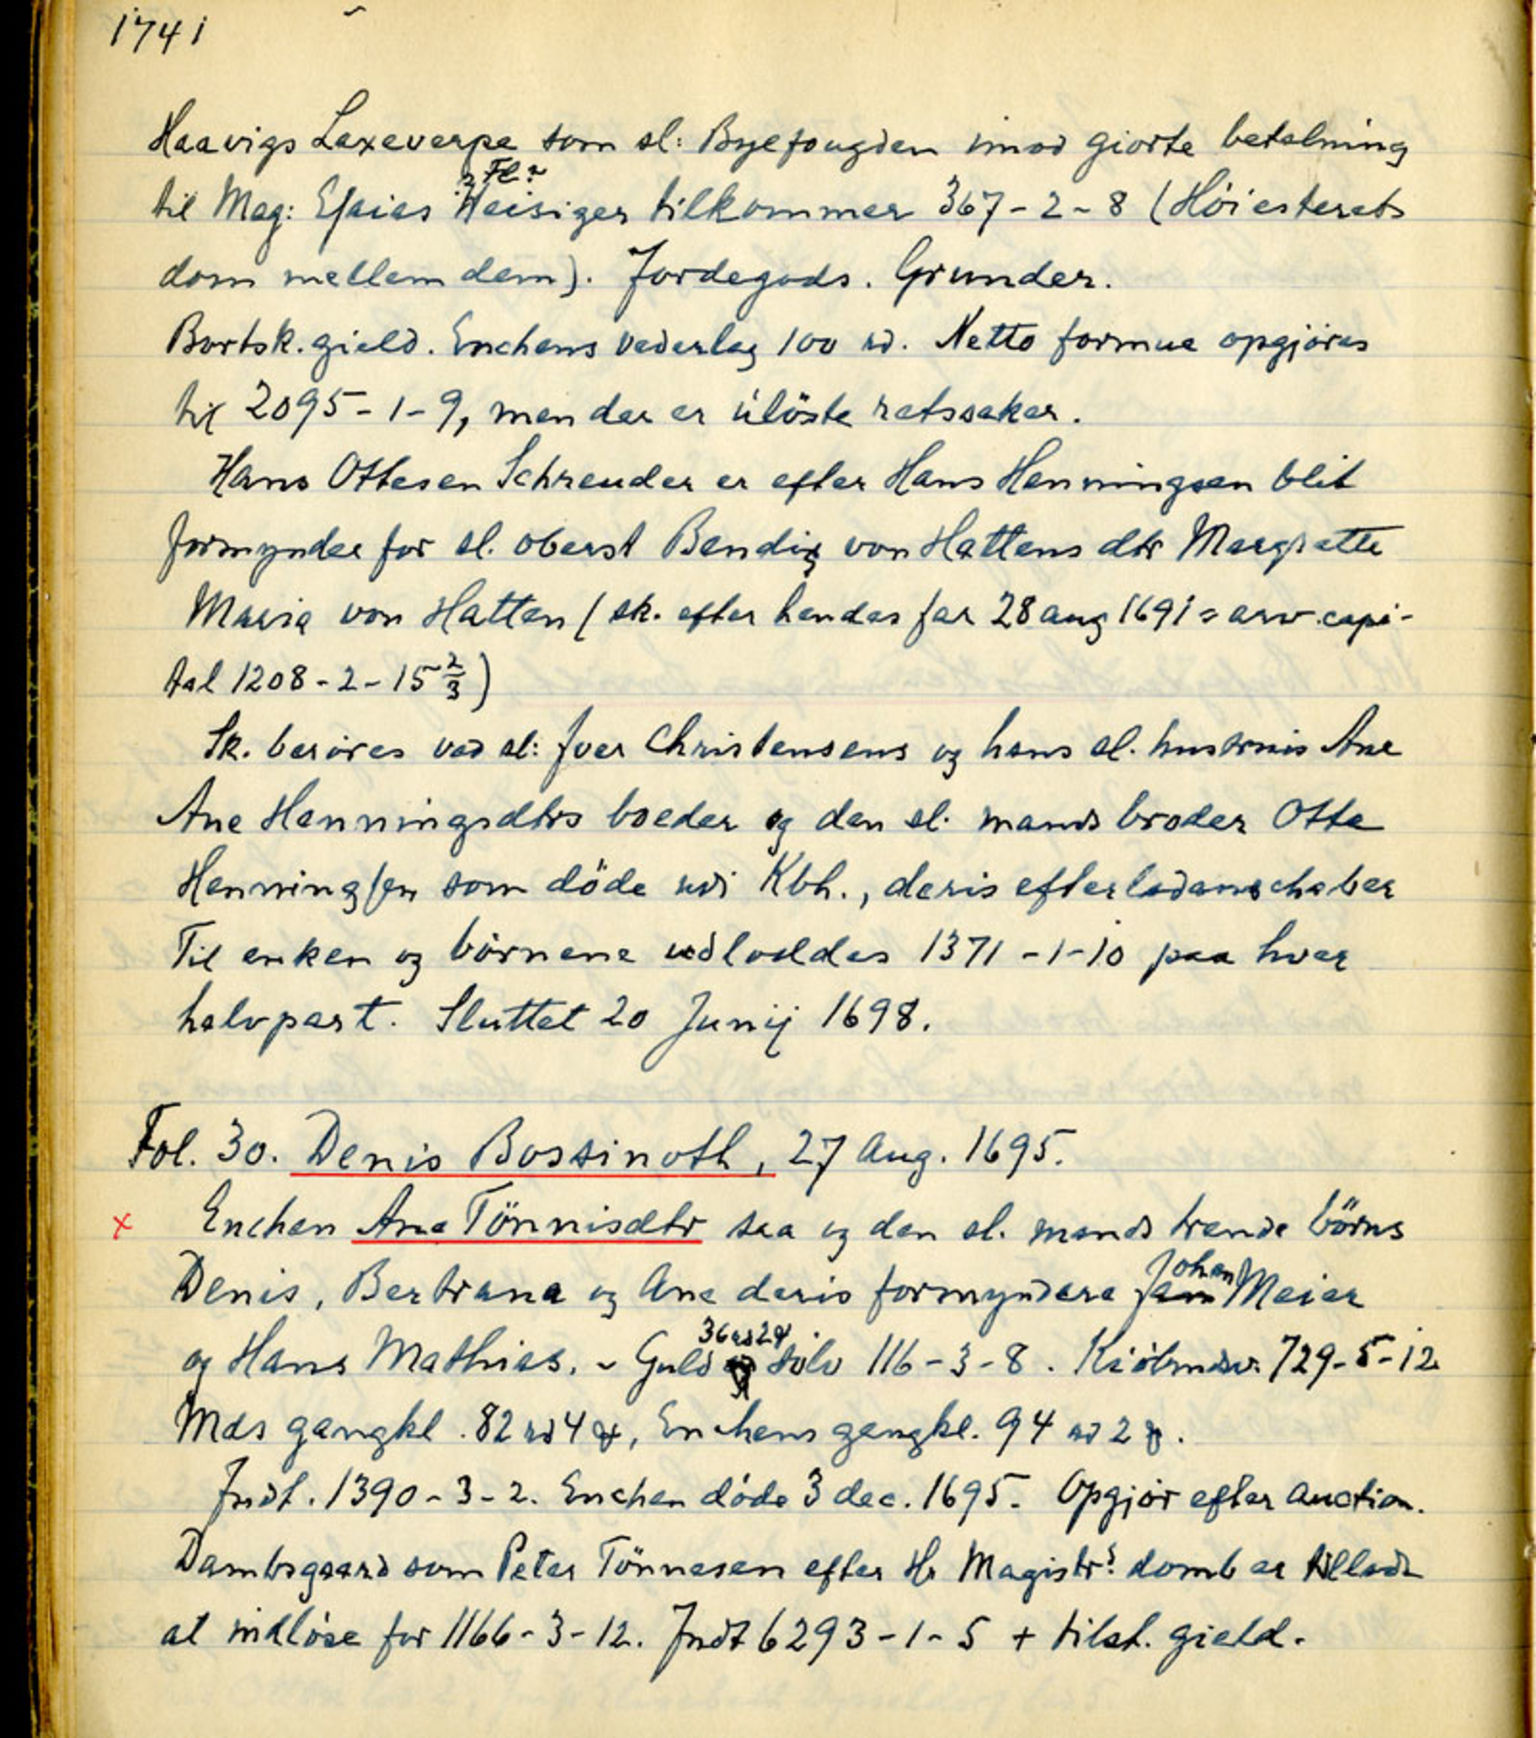 1741
Haavigs Laxeverpe som sl: Byefougden imod giorte betalning
til Mag: Esaias Weisiger tilkommer 367-2-8 (Höiesterets
dom mellem dem). Jordegods. Grunder.
Bortsk. gield. Enchens vederlag 100 rd. Netto formue opgjöres
til 2095-1-9, men der er ulöste retssaker.
Hans Ottesen Schreuder er efter Hans Henningsen blit
formynder for sl. oberst Bendix von Hattens dtr Margrette
Maria von Hatten (sk. efter hendes far 28 aug 1691 = arv. capi-
tal 1208-2-15 2/3)
Sk. beröres ved sl: Jver Christensens og hans sl. hustruis Ane
Ane Henningsdtrs boeder og den sl. mands broder Otte
Henningsen som döde udi Kbh., deris efterladenschaber
Til enken og börnene udloddes 1371-1-10 paa hver
halvpart. Sluttet 20 Junij 1698.
Fol. 30. Denis Bossinoth, 27 Aug. 1695.
x Enchen Ane Tönnisdtr saa og den sl. mands trende börns
Denis, Bertrana og Ane deris formyndere Jam Johan Meier
og Hans Mathias. - Guld 36 rd 2 sölv 116-3-8. Kiöbmdsv. 729-5-12
Mds gangkl. 82 rd 4, Enchens gangkl. 94 rd 2.
Jndt. 1390-3-2. Enchen döde 3 dec. 1695. Opgjör efter auction.
Dambsgaard som Peter Tönnesen efter Hr Magistr: domb er tilladt
at indlöse for 1166-3-12. Jndt 6293-1-5 + tilst. gield.